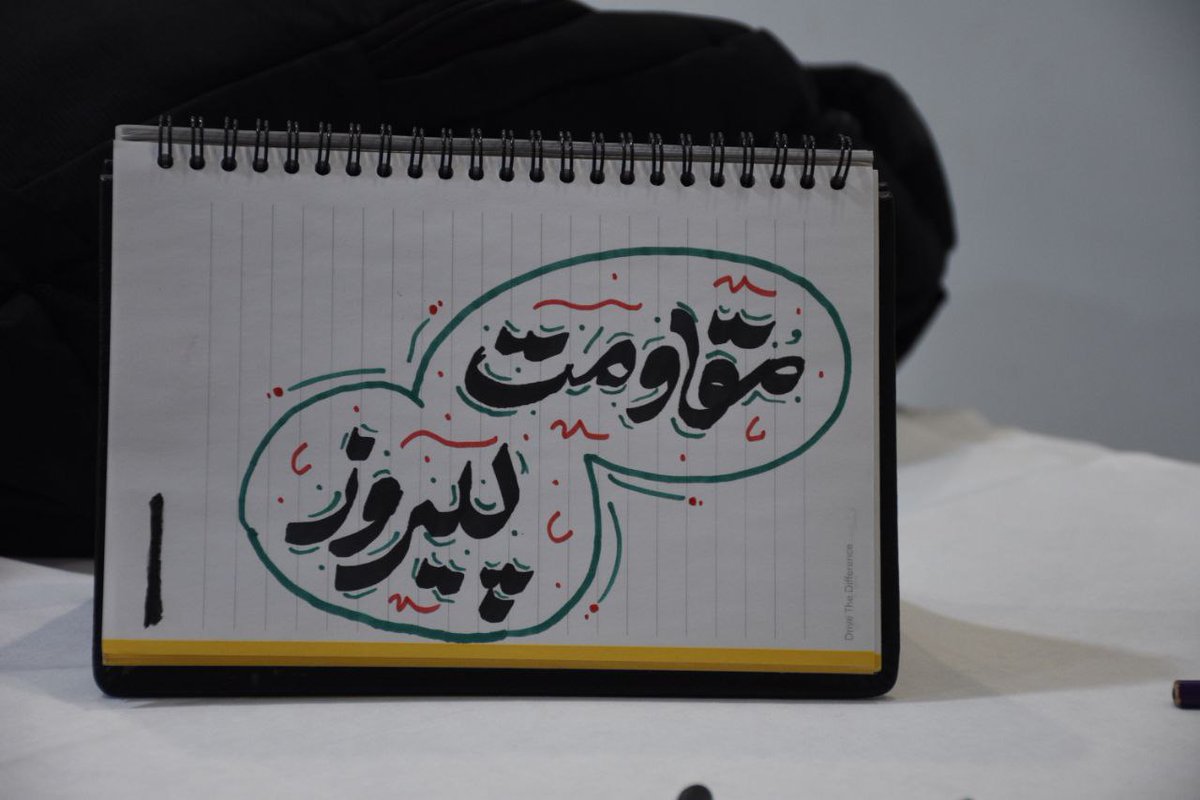 مُقاومت
پیروز
Drive The Difference